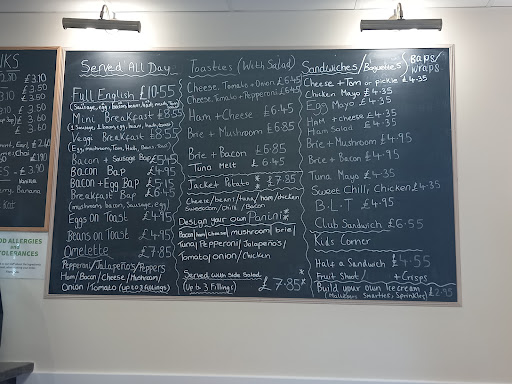 NKS
£3.10
£3.50
£3.50
£3.50
£3.60
£2.40
£1.90
£3.50
FOOD ALLERGIES
AND
INTOLERANCES
Served All Day
Full English £10.55
(Sausage, egg, bacon, beans, hash, mush, Tom)
Mini Breakfast £8.55
(1 Sausage, 1 bacon, egg, beans, hash, toast)
Vegi Breakfast £8.55
(Egg, mushroom, Tom, Hash, Beans, Toast)
Bacon + Sausage Bap £5.45
Bacon Bap £4.95
Bacon + Egg Bap £5.15
Breakfast Bap £6.45
(mushroom, bacon, Sausage, egg)
Eggs on Toast £4.95
Beans on Toast £4.95
Omelette £7.85
Pepperoni / Jalapeños / Peppers
Ham / Bacon / Cheese / Mushroom /
Onion / Tomato (up to 3 fillings)
Toasties (With Salad)
Cheese, Tomato + Onion £6.45
Cheese, Tomato + Pepperoni £6.45
Ham + Cheese £6.45
Brie + Mushroom £6.85
Brie + Bacon £6.85
Tuna Melt £6.45
Jacket Potato * £7.85
Cheese / beans / tuna / ham / chicken
Sweetcorn / Chilli / Bacon
Design your own Panini *
Bacon / ham / Cheese / mushroom / brie /
Tuna / Pepperoni / Jalapeños /
Tomato / onion / Chicken
Served with Side Salad
(Up to 3 Fillings) £7.85 *
Sandwiches / Baguettes / Baps /
Wraps
Cheese + Tom or pickle £4.35
Chicken Mayo £4.35
Egg Mayo £4.35
Ham + cheese £4.35
Ham Salad £4.35
Brie + Mushroom £4.95
Brie + Bacon £4.95
Tuna Mayo £4.35
Sweet Chilli Chicken £4.35
B.L.T £4.95
Club Sandwich £6.55
Kids Corner
Half a Sandwich £4.55
Fruit Shoot / + Crisps
Build your own Icecream £2.95
(Mallows, Smarties, Sprinkles)